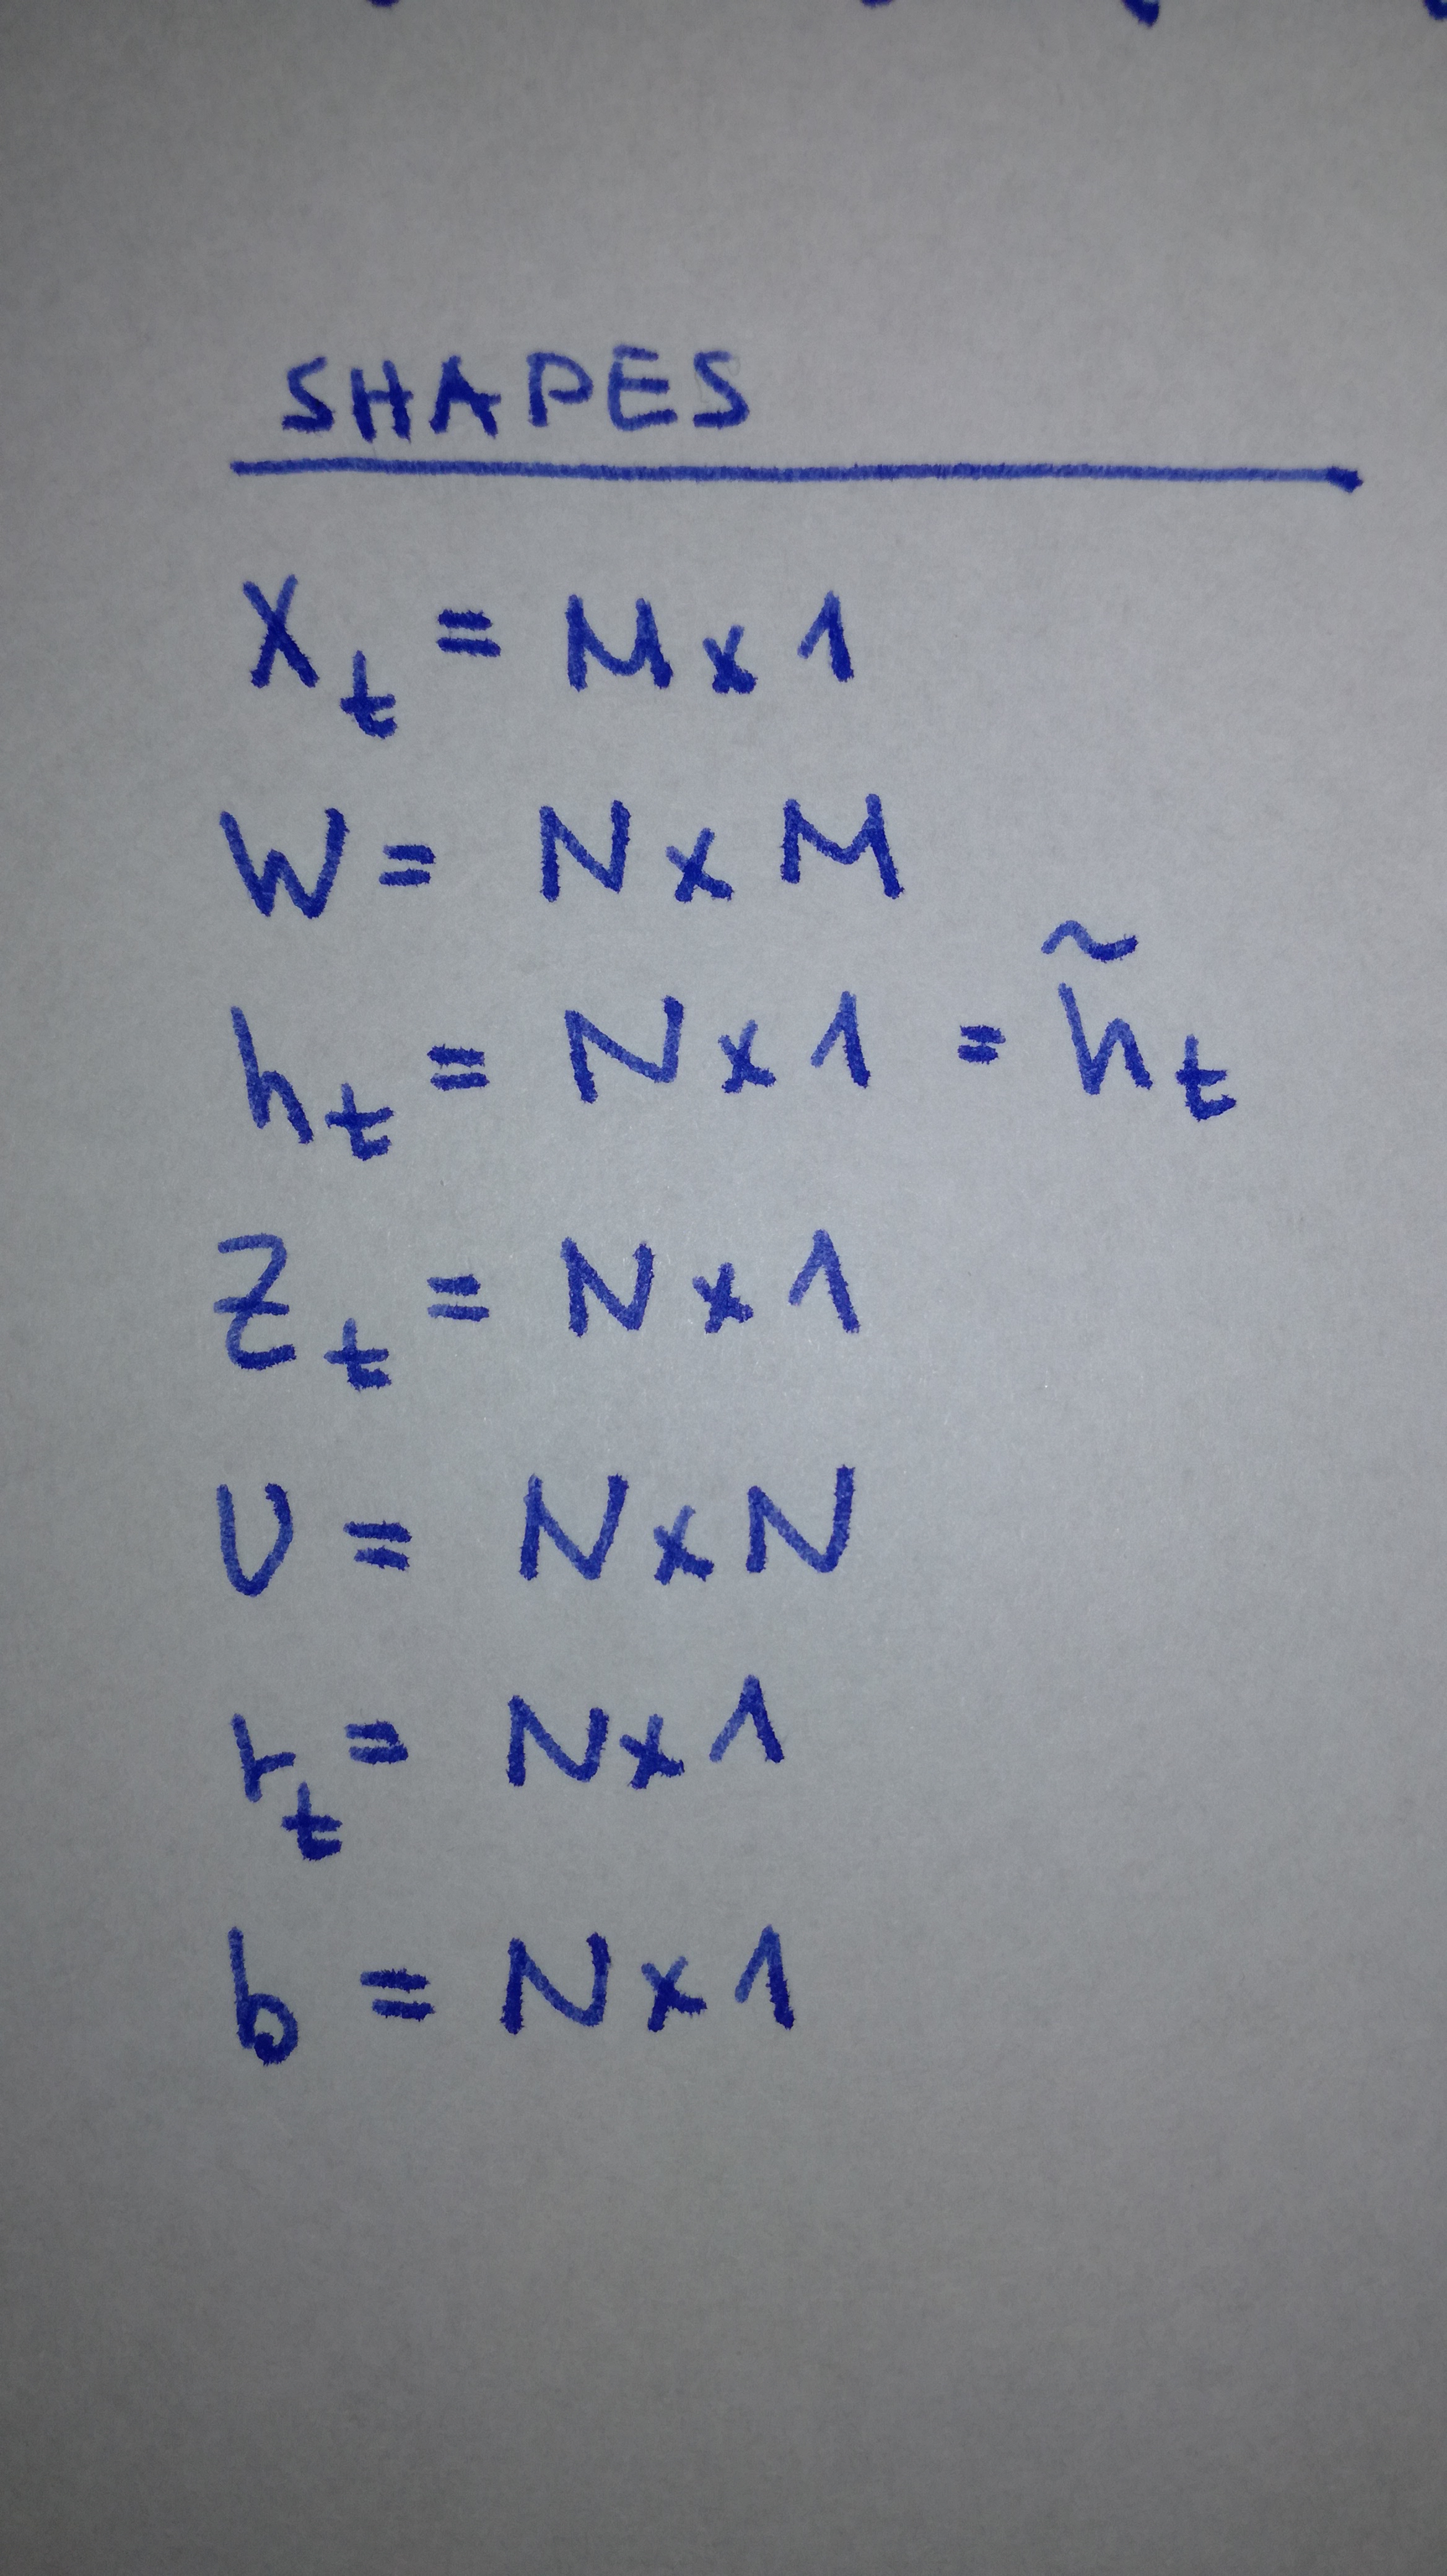 SHAPES
X_t = M x 1
W = N x M
h_t = N x 1 = h̃_t
Z_t = N x 1
U = N x N
r_t = N x 1
b = N x 1